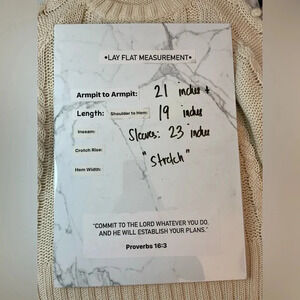 •LAY FLAT MEASUREMENT•
Armpit to Armpit: 21 inches +
Length: Shoulder to Hem: 19 inches
Inseam: Sleeves: 23 inches
Crotch Rise: "Stretch"
Hem Width:
"COMMIT TO THE LORD WHATEVER YOU DO,
AND HE WILL ESTABLISH YOUR PLANS."
Proverbs 16:3